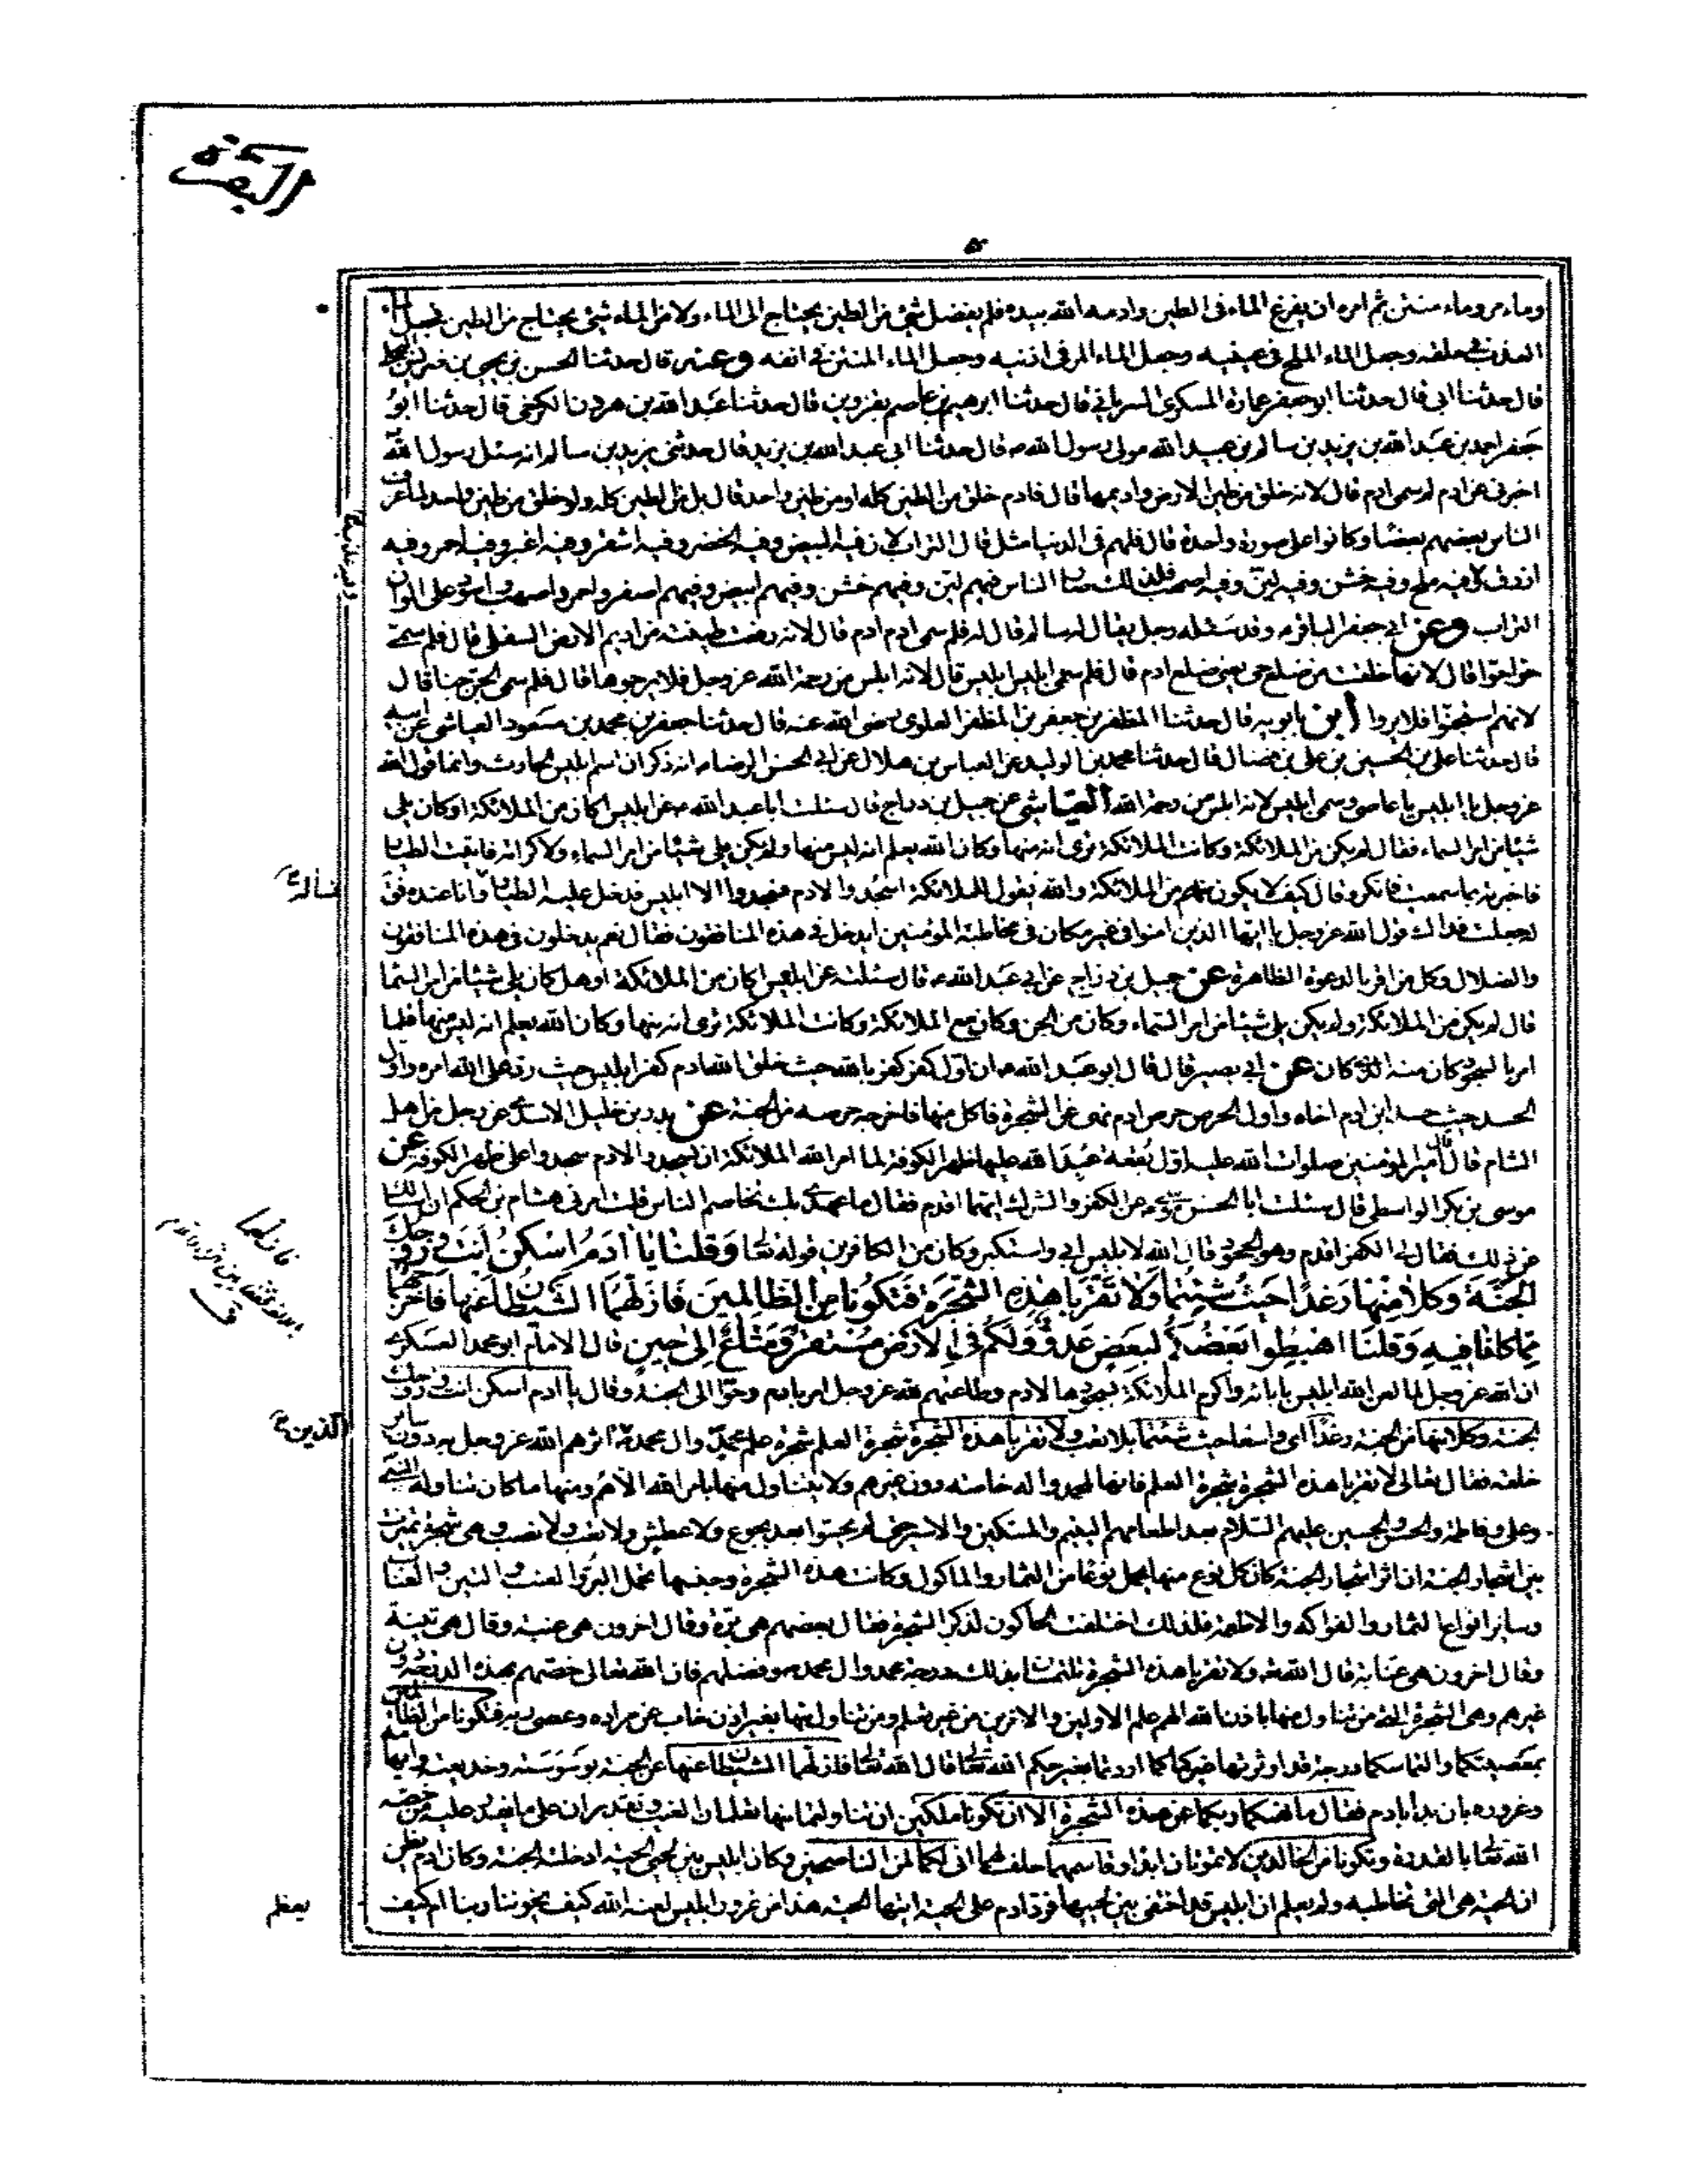 البقرة
وماء مر وماء منتن ثم امره ان يفرغ الماء في الطين وادمه الله بيده فلم يفضل شيء من الطين يحتاج الى الماء ولا من الماء شيء يحتاج من الطين فجعل الماء
العذب في حلقه وجعل الماء المالح في عينيه وجعل الماء المر في اذنيه وجعل الماء المنتن في انفه وعنه قال حدثنا الحسن بن يحيى بن ضريس البجلي
قال حدثنا ابي قال حدثنا ابو جعفر عمارة السكري السرياني قال حدثنا ابرهيم بن عاصم بقزوين قال حدثنا عبد الله بن هرون الكرخي قال حدثنا ابو
جعفر احمد بن عبد الله بن يزيد بن سالم بن عبيد الله مولى رسول الله ص قال حدثنا ابي عبد الله بن يزيد قال حدثني يزيد بن سالم انه سئل رسول الله
اخبرني عن ادم لم سمى ادم قال لانه خلق من طين الارض واديمها قال فادم خلق من الطين كله او من طين واحد قال بل من الطين كله ولو خلق من طين واحد لما عرف
الناس بعضهم بعضا وكانوا على صورة واحدة قال فلهم في الدنيا مثل قال التراب لان فيه ابيض وفيه اخضر وفيه اشقر وفيه اغبر وفيه احمر وفيه
ازرق وفيه ملح وفيه خشن وفيه لين وفيه اصهب فلذلك صار الناس فيهم لين وفيهم خشن وفيهم ابيض وفيهم اصفر واحمر واصهب واسود على الوان
التراب وعن ابي جعفر الباقر ع وقد سئله رجل يقال له سالم قال له فلم سمى ادم ادم قال لانه رفعت طينته من اديم الارض السفلى قال فلم سميت
حوا حوا قال لانها خلقت من ضلع حي يعني ضلع ادم قال فلم سمى ابليس ابليس قال لانه ابلس من رحمة الله عز وجل فلا يرجوها قال فلم سمى الجن جنا قال
لانهم استجنوا فلا يروا ابن بابويه قال حدثنا المظفر بن جعفر بن المظفر العلوي رضي الله عنه قال حدثنا جعفر بن محمد بن مسعود العياشي عن ابيه
قال حدثنا علي بن الحسين بن علي بن فضال قال حدثنا محمد بن الوليد عن العباس بن هلال عن ابي الحسن الرضا ع انه ذكر ان اسم ابليس الحارث وانما قول الله
عز وجل يا ابليس يا عاصى وسمى ابليس لانه ابلس من رحمة الله العياشي عن جميل بن دراج قال سئلت ابا عبد الله ع عن ابليس اكان من الملائكة او كان يلي
شيئا من امر السماء فقال لم يكن من الملائكة وكانت الملائكة ترى انه منها وكان الله يعلم انه ليس منها ولم يكن يلي شيئا من امر السماء ولا كرامة فاتيت الطيار
فاخبرته بما سمعت فانكر وقال كيف لا يكون من الملائكة والله يقول للملائكة اسجدوا لادم فسجدوا الا ابليس فدخل عليه الطيار وانا عنده فق
فسأله
لجعلت فداك قول الله عز وجل يا ايها الذين امنوا في غير مكان في مخاطبة المؤمنين ايدخل في هذه المنافقون فقال نعم يدخلون في هذه المنافقون
والضلال وكل من اقر بالدعوة الظاهرة عن جميل بن دراج عن ابي عبد الله ع قال سئلته عن ابليس اكان من الملائكة او هل كان يلي شيئا من امر السما
قال لم يكن من الملائكة ولم يكن يلي شيئا من امر السماء وكان من الجن وكان مع الملائكة وكانت الملائكة ترى انه منها وكان الله يعلم انه ليس منها فلما
امر بالسجود كان منه الذي كان عن ابي بصير قال قال ابو عبد الله ع ان اول كفر كفر بالله حيث خلق الله ادم كفر ابليس حيث رد على الله امره واول
الحسد حيث حسد ابن ادم اخاه واول الحرص حرص ادم نهى عن الشجرة فاكل منها فاخرجه حرصه من الجنة عن بدر بن خليل الاسدي عن رجل من اهل
الشام قال قال امير المؤمنين صلوات الله عليه اول بقعة عبد الله عليها ظهر الكوفة لما امر الله الملائكة ان يسجدوا لادم سجدوا على ظهر الكوفة عن
موسى بن بكر الواسطي قال سئلت ابا الحسن موسى ع عن الكفر والشرك ايهما اقدم فقال ما عهدي بك تخاصم الناس قلت امرني هشام بن الحكم ان اسئلك
عن ذلك فقال لي الكفر اقدم وهو الجحود قال الله لابليس ابى واستكبر وكان من الكافرين قوله تعا وَقُلْنَا يَا اٰدَمُ اسْكُنْ اَنْتَ وَزَوْجُكَ
الْجَنَّةَ وَكُلَا مِنْهَا رَغَدًا حَيْثُ شِئْتُمَا وَلَا تَقْرَبَا هٰذِهِ الشَّجَرَةَ فَتَكُونَا مِنَ الظَّالِمِينَ فَاَزَلَّهُمَا الشَّيْطَانُ عَنْهَا فَاَخْرَجَهُمَا
مِمَّا كَانَا فِيهِ وَقُلْنَا اهْبِطُوا بَعْضُكُمْ لِبَعْضٍ عَدُوٌّ وَلَكُمْ فِي الْاَرْضِ مُسْتَقَرٌّ وَمَتَاعٌ اِلٰى حِينٍ قال الامام ابو محمد العسكري
ان الله عز وجل لما لعن الله ابليس بابائه واكرم الملائكة بسجودها لادم وطاعتهم لله عز وجل امر بادم وحوا الى الجنة وقال يا ادم اسكن انت وزوجك
الجنة وكلا منها من الجنة رغدا اى واسعا حيث شئتما بلا تعب ولا تقربا هذه الشجرة شجرة العلم شجرة علم محمد وال محمد اثرهم الله عز وجل به دون ساير
الذين
خلقه فقال تعالى لا تقربا هذه الشجرة شجرة العلم فانها لمحمد واله خاصة دون غيرهم ولا يتناول منها بامر الله الا هم ومنها ما كان تناوله النبي
وعلى وفاطمة والحسن والحسين عليهم السلام بعد اطعامهم اليتيم والمسكين والاسير حتى لم يحسوا بعد بجوع ولا عطش ولا تعب ولا نصب وهي شجرة تميزت
بين اشجار الجنة ان سائر اشجار الجنة كان كل نوع منها يحمل نوعا من الثمار والماكول وكانت هذه الشجرة وجنسها تحمل البر والعنب والتين والعناب
وساير انواع الثمار والفواكه والاطعمة فلذلك اختلفت الحاكون لذكر الشجرة فقال بعضهم هي برة وقال اخرون هي عنبة وقال هي تينة
وقال اخرون هي عنابة قال الله ولا تقربا هذه الشجرة تلتمسان بذلك درجة محمد وال محمد وفضلهم فان الله تعالى خصهم بهذه الدرجة دون
غيرهم وهي الشجرة التي من تناول منها باذن الله الهم علم الاولين والاخرين من غير تعلم ومن تناول منها بغير اذن خاب عن مراده وعصى ربه فتكونا من الظالمين
بمعصيتكما والتماسكما درجة قد اوثر بها غيركما كما اردتما بغير حكم الله تعا قال الله تعا فازلهما الشيطان عنها عن الجنة بوسوسته وخديعته وايهامه
وغروره بان بدأ بادم فقال ما نهيكما ربكما عن هذه الشجرة الا ان تكونا ملكين ان تناولتما منها تعلمان الغيب وتقدران على ما يقدر عليه من خصه
الله تعا بالقدرة وتكونا من الخالدين لا تموتان ابدا وقاسمهما حلف لهما انى لكما لمن الناصحين وكان ابليس بين لحيي الحية ادخلته الجنة وكان ادم يظن
ان الحية هي التي تخاطبه ولم يعلم ان ابليس قد اختفى بين لحييها فرد ادم على الحية ايتها الحية هذا من غرور ابليس لعنه الله كيف يخوننا ربنا ام كيف
يعظم